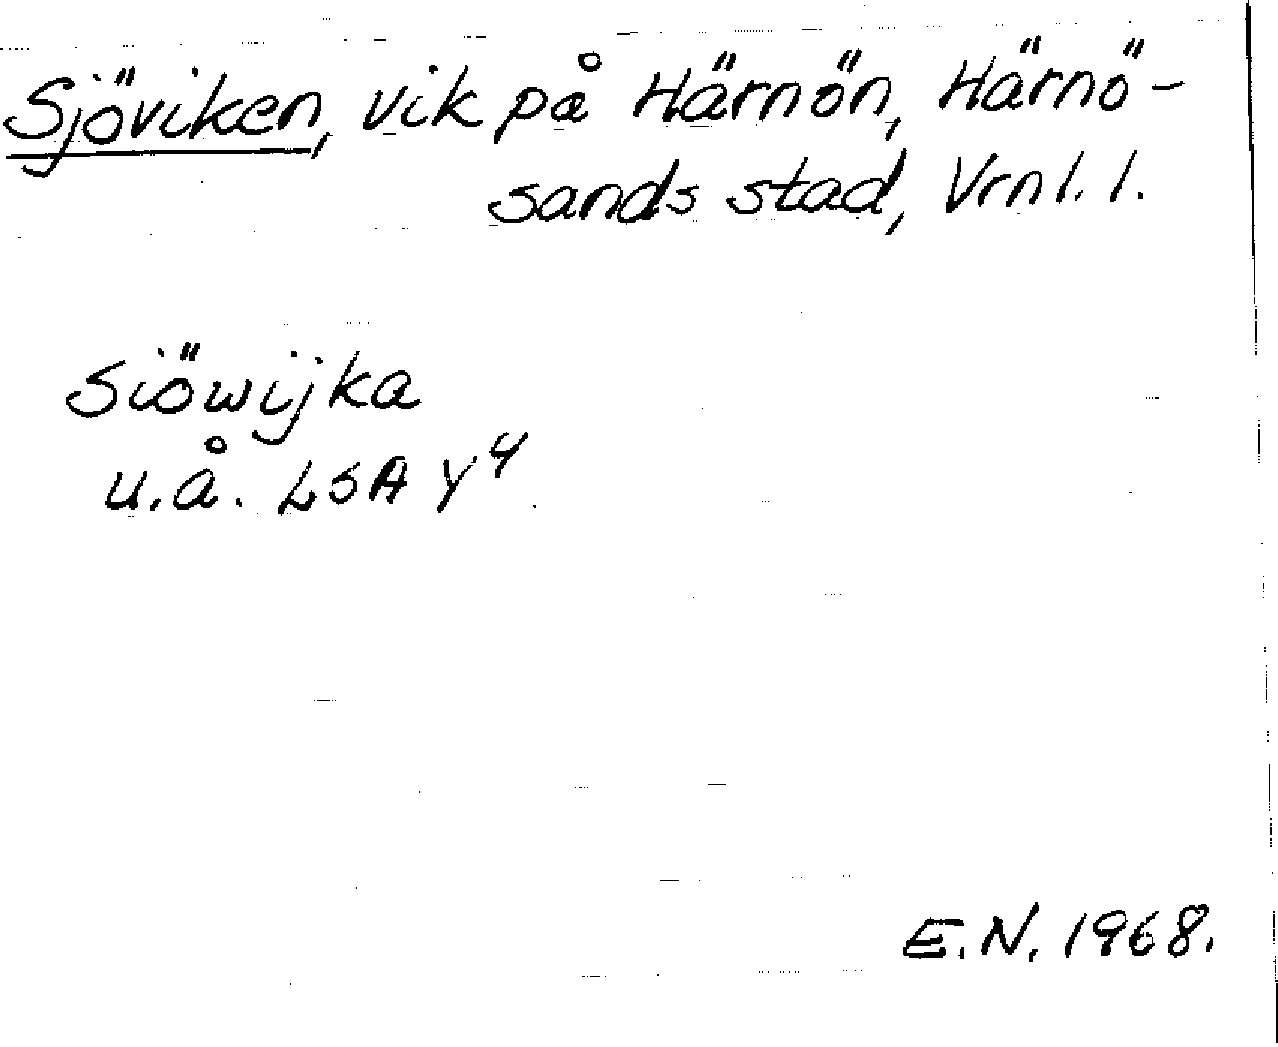 Sjöviken, vik på Härnön, Härnö-
sands stad, Vrnl. l.
Siöwijka
u.å. LSA Y 4
E.N. 1968.